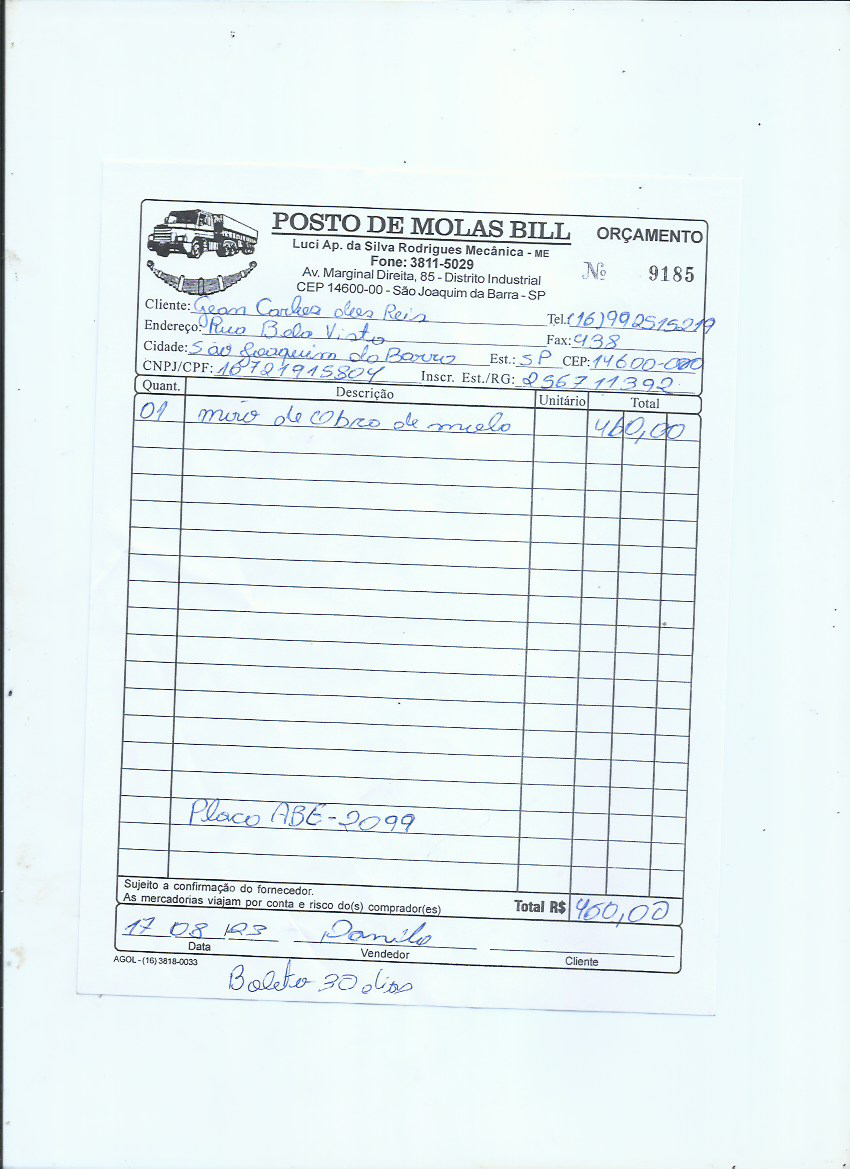 POSTO DE MOLAS BILL
ORÇAMENTO
Luci Ap. da Silva Rodrigues Mecânica - ME
Fone: 3811-5029
Nº 9185
Av. Marginal Direita, 85 - Distrito Industrial
CEP 14600-00 - São Joaquim da Barra - SP
Cliente: Gean Carlos dos Reis Tel. (16)992515219
Endereço: Rua Bela Vista Fax: 938
Cidade: São Joaquim da Barra Est.: SP CEP: 14600-000
CNPJ/CPF: 16721915804 Inscr. Est./RG: 256711392
Quant. Descrição Unitário Total
01 mão de obra de mola 460,00
Placa ABE-2099
Sujeito a confirmação do fornecedor.
As mercadorias viajam por conta e risco do(s) comprador(es)
Total R$ 460,00
17 08 23 Danilo
Data Vendedor Cliente
AGOL - (16) 3818-0033
Boleto 30 dias